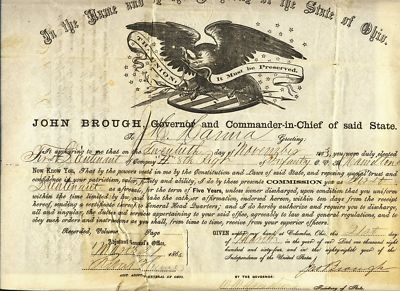 In the Name and by the Authority of the State of Ohio.
THE UNION!
It Must be Preserved.
JOHN BROUGH, Governor and Commander-in-Chief of said State.
To
Greeting:
It appearing to me that on the twentieth day of November 1863, you were duly elected
First Lieutenant of Company H 8th Regt of Infantry O.V.M. Hamilton Co
Now Know You, That by the powers vested in me by the Constitution and Laws of said State, and reposing special trust and
confidence in your patriotism, valor, fidelity and ability, I do by these presents COMMISSION you as First
Lieutenant as aforesaid, for the term of Five Years, unless sooner discharged, upon condition that you uniform
within the time limited by law, and take the oath or affirmation, endorsed hereon, within ten days from the receipt
hereof, sending a certificate thereof to General Head Quarters; and I do hereby authorize and require you to discharge,
all and singular, the duties and services appertaining to your said office, agreeably to law and general regulations, and to
obey such orders and instructions as you shall, from time to time, receive from your superior officers.
Recorded, Volume Page
Adjutant General's Office,
GIVEN under my hand at Columbus, Ohio, this 21st day
of in the year of our Lord one thousand eight
hundred and sixty- and in the eighty-eighth year of the
Independence of the United States.
John Brough
ADJUTANT GENERAL OF OHIO.
BY THE GOVERNOR:
Secretary of State.